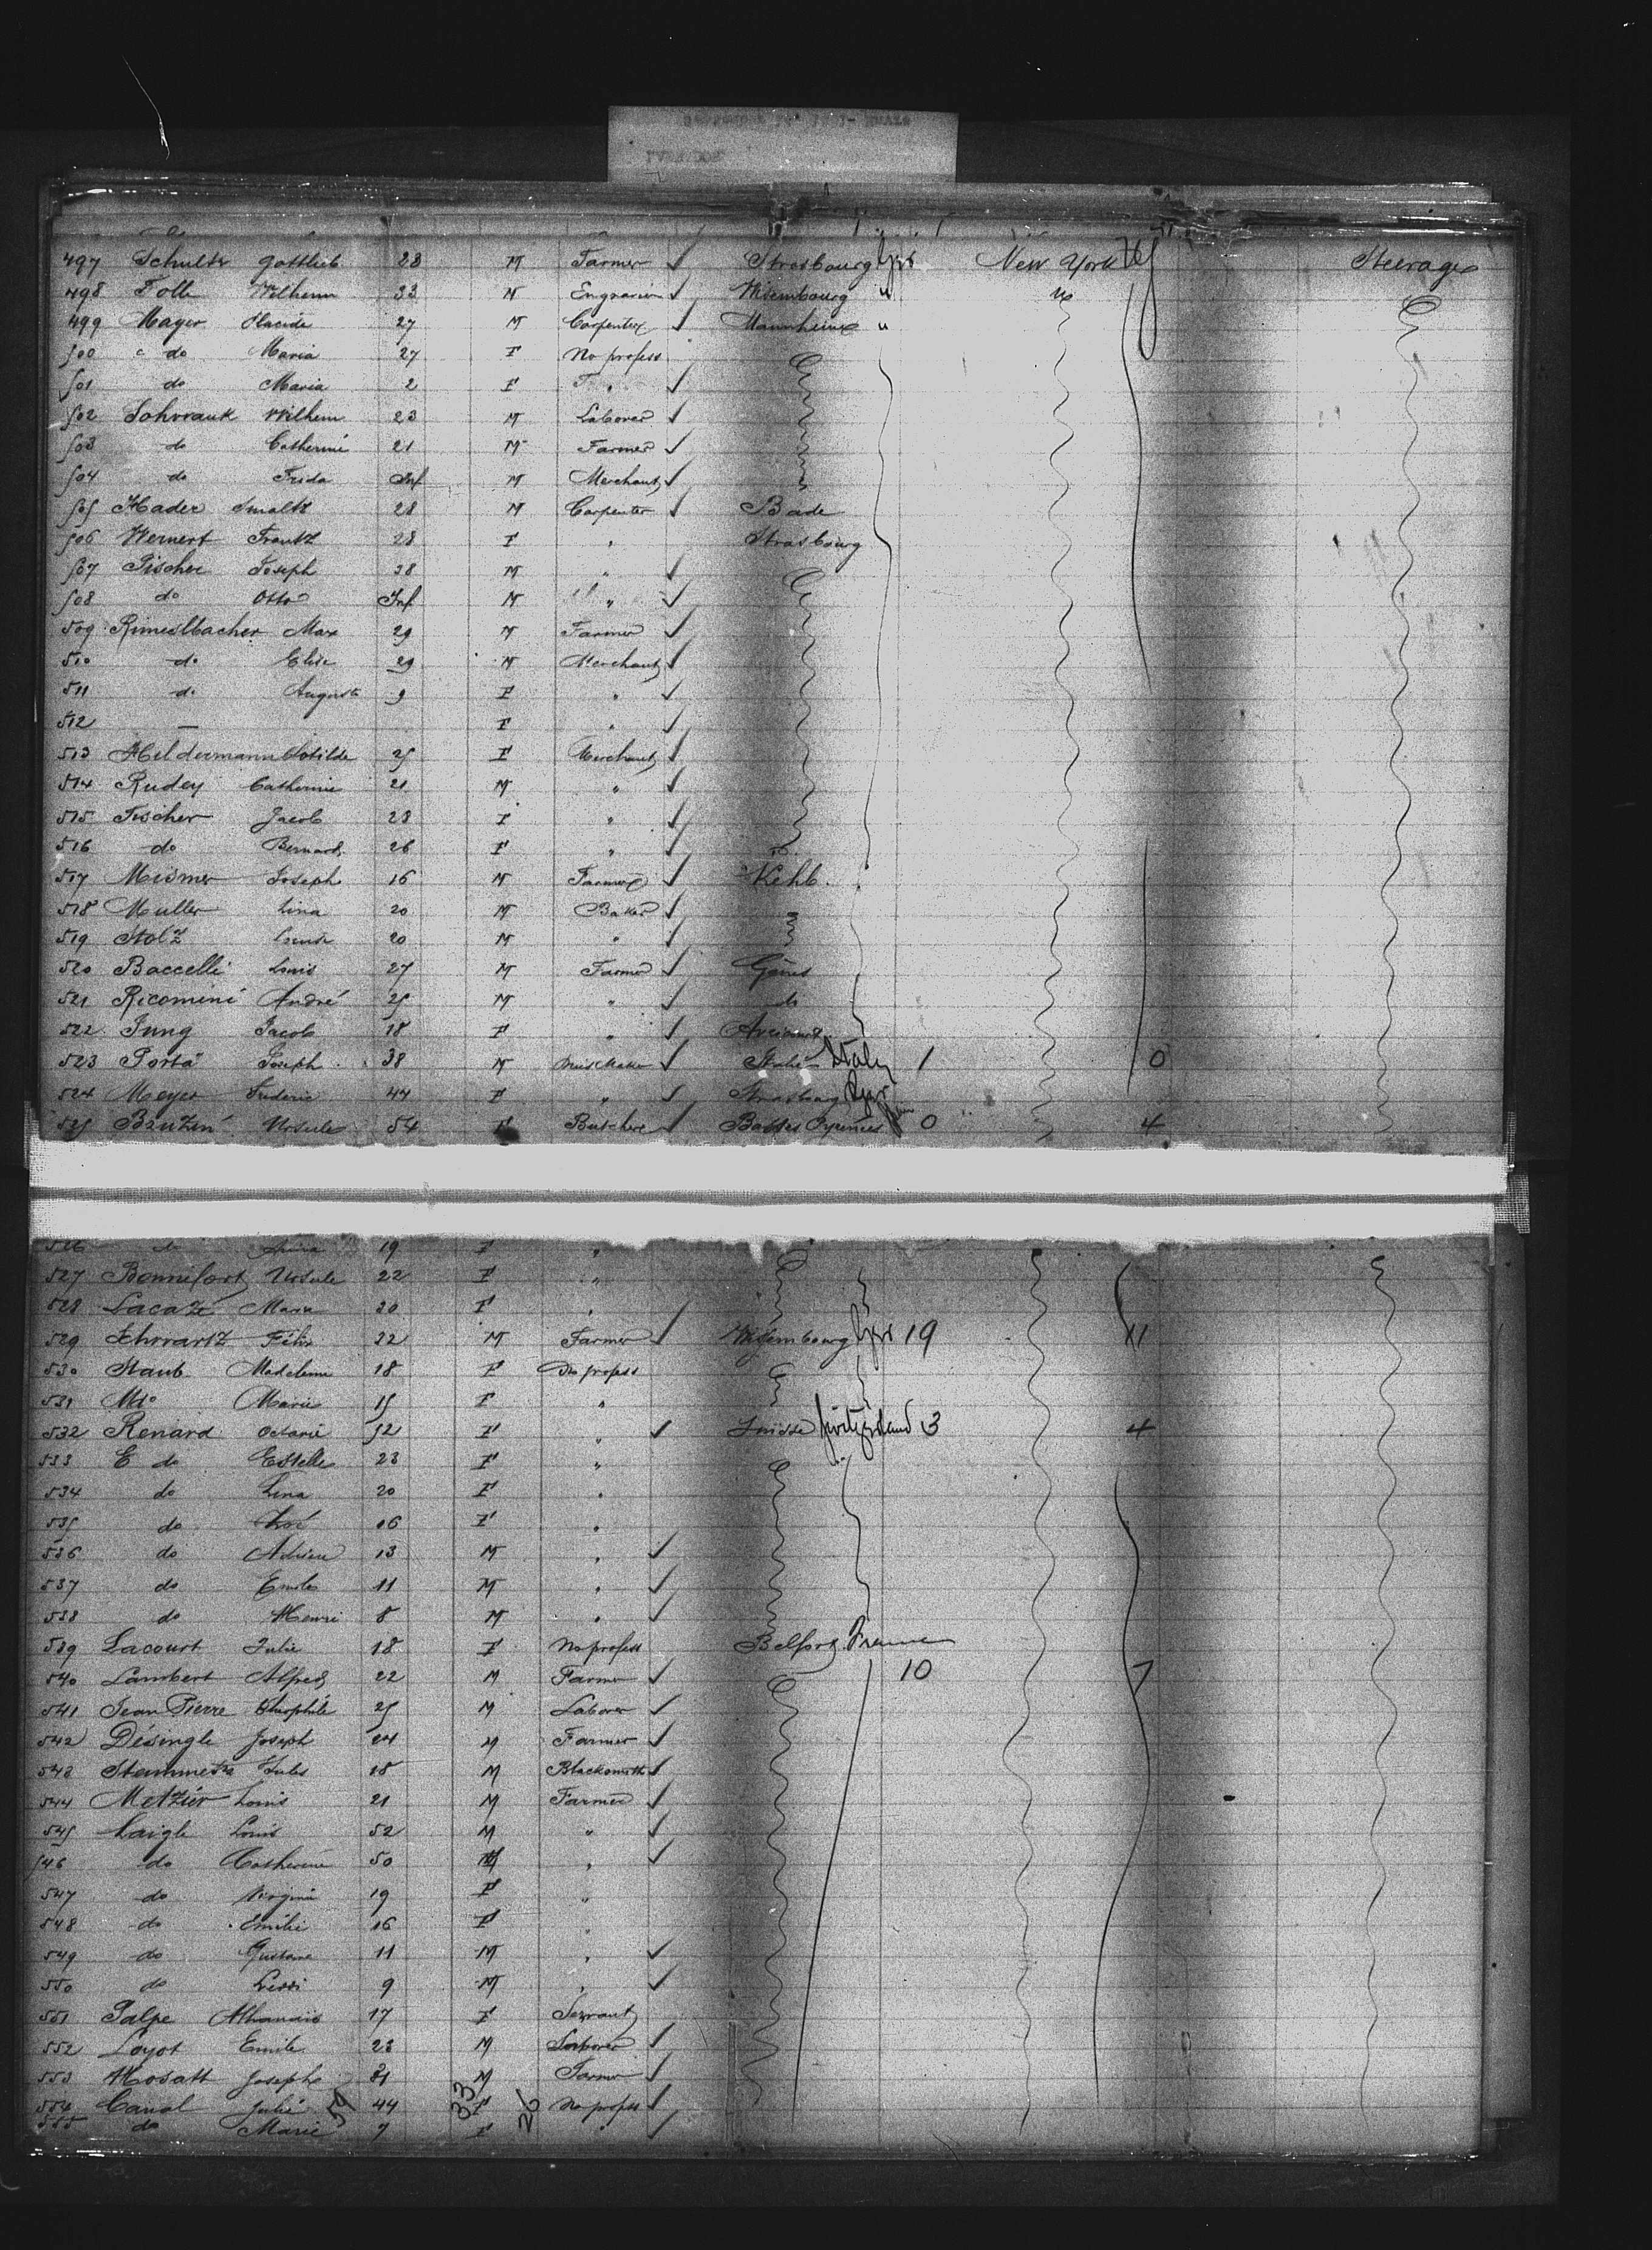 497 Schultz Gottlieb 28 M Farmer Strasbourg Ger New York Steerage
498 Tolle Wilhem 33 M Engraver Wisembourg "
499 Mayer Placide 27 M Carpenter Mannheim "
500 do Maria 27 F No profess
501 do Maria 2 F "
502 Wilhem 23 M Laborer
503 do Catherine 21 M Farmer
504 do Frida Inf M Merchant
505 Hader 28 M Carpenter Bade
506 Wernert Frantz 28 F " Strasbourg
507 Fischer Joseph 28 M "
508 do Otto Inf M "
509 Rimeslbacher Max 29 M Farmer
510 do Elise 29 M Merchant
511 do Auguste 9 F "
512 — F "
513 Heldermann Clotilde 25 F Merchant
514 Rudey Catherine 21 M "
515 Fischer Jacob 28 F "
516 do Bernard 26 F "
517 Mismer Joseph 16 M Farmer Kehl
518 Muller Lina 20 M Baker
519 Stolz Louise 20 M "
520 Baccelli Louis 27 M Farmer Gênes
521 Ricomini André 25 M " do
522 Jung Jacob 18 F "
523 Porta Joseph 38 M Italie Italy 1 0
524 Meyer Frederic 44 F " Strasbourg Ger
525 Ursule 54 F Butcher Basses Pyrénées 0 4
526 do 19 F "
527 Bonnefort Ursule 22 F "
528 Lacaze Marie 20 F "
529 Schwartz Félix 22 M Farmer Wissembourg Ger 19 11
530 Staub Madeleine 18 F No profess
531 Marie 15 F "
532 Renard Octavie 52 F " Suisse Switzerland 3 4
533 E do Estelle 23 F "
534 do Lina 20 F "
535 do 16 F "
536 do Adrien 13 M "
537 do Emile 11 M "
538 do Henri 8 M "
539 Lacourt Julie 18 F No profess Belfort France
540 Lambert Alfred 22 M Farmer 10 7
541 Jean Pierre Théophile 25 M Laborer
542 Désingle Joseph 24 M Farmer
543 Stammetz Jules 18 M Blacksmith
544 Metzier Louis 21 M Farmer
545 Laigle Louis 52 M "
546 do Catherine 50 "
547 do Virginie 19 F "
548 do Emilie 16 F "
549 do Gustave 11 M "
550 do 9 M "
551 Palpe Athanais 17 F Servant
552 Loyot Emile 23 M Laborer
553 Mosatt Joseph 31 M Farmer
554 Canal Julie 54 44 33 F 26 No profess
555 do Marie 7 F "